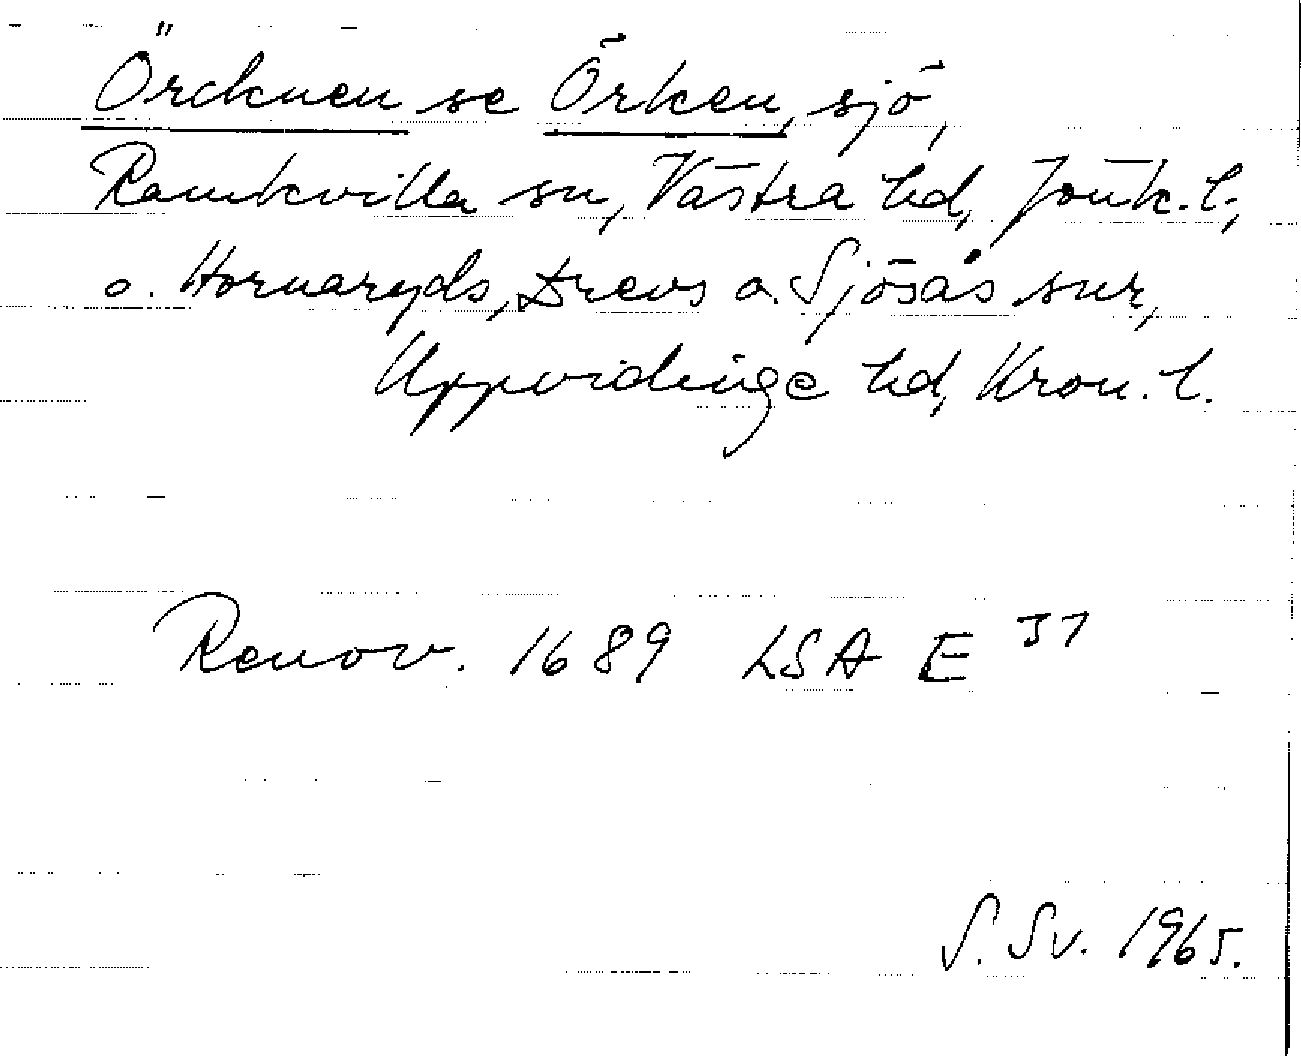 Örcknen se Örken, sjö,
Ramkvilla sn, Västra hd, Jönk. l.,
o. Hornaryds, Drevs o. Sjösås snr,
Uppvidinge hd, Kron. l.
Renov. 1689 LSA E 37
S. Sv. 1965.